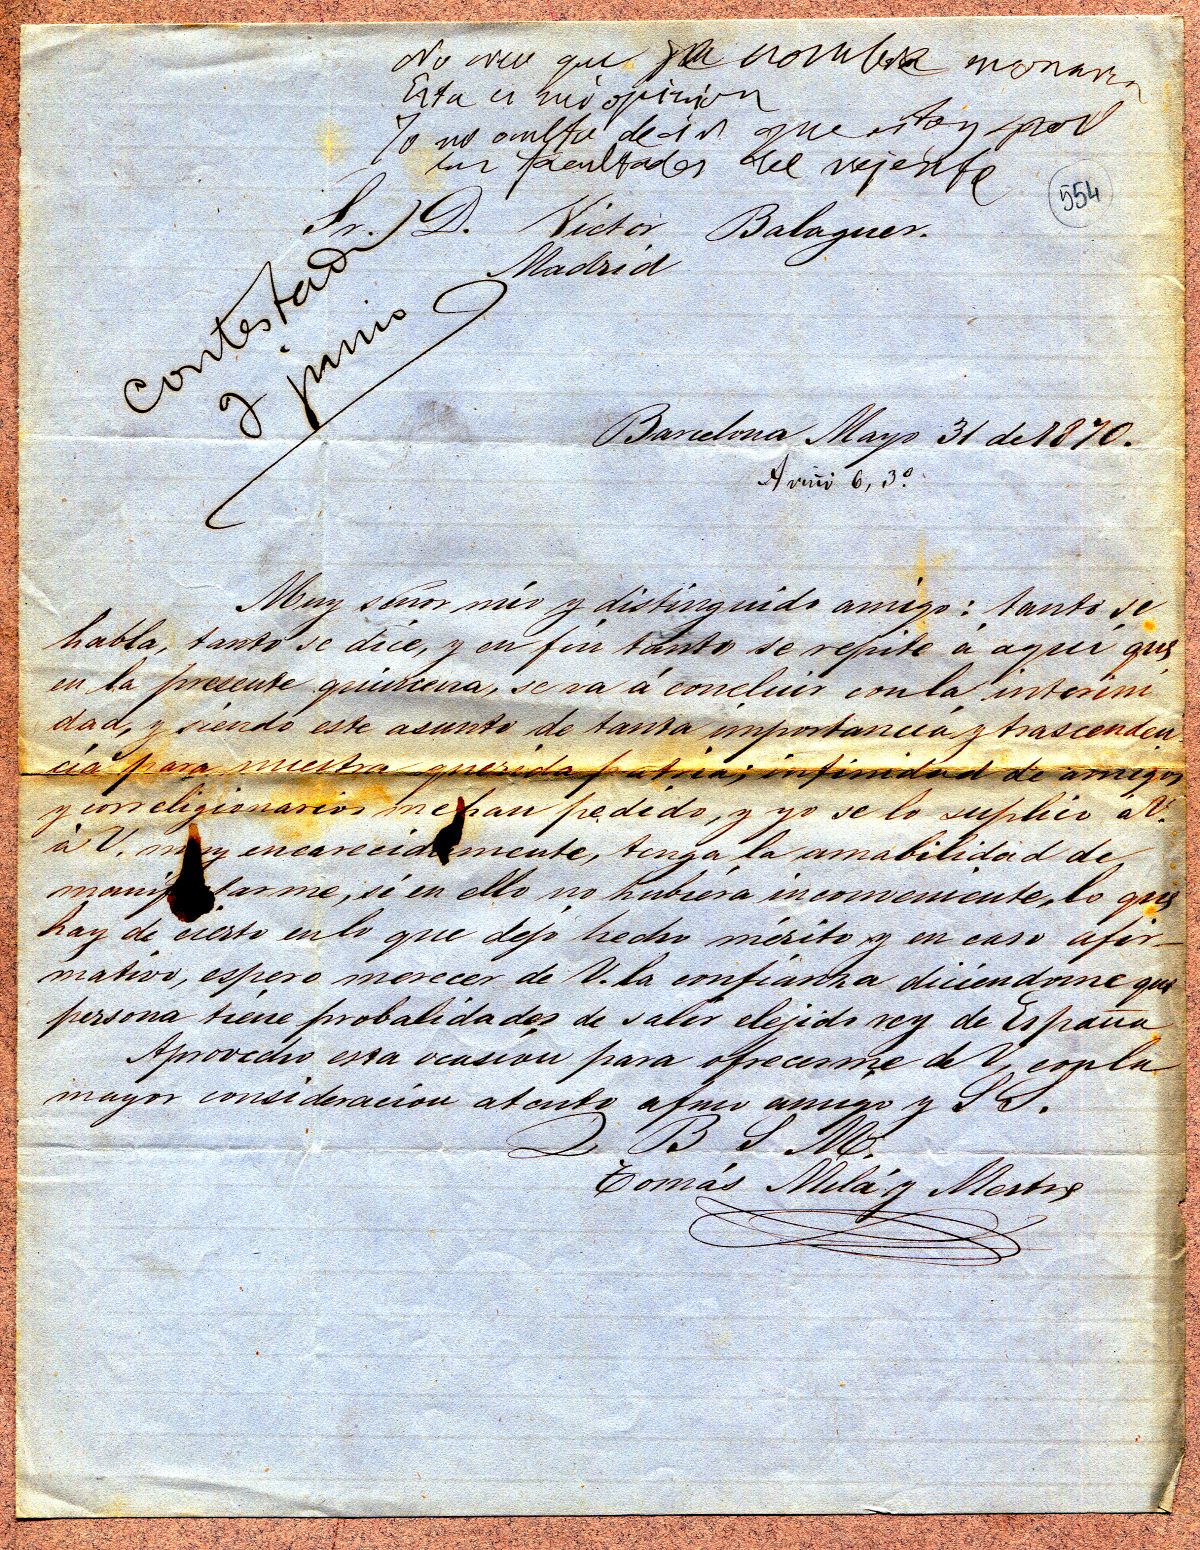 No creo que se nombre monarca
Esta es mi opinion
Yo no oculto decir que estoy por
las facultades del rejente
554
Sr. D. Victor Balaguer.
Madrid
contestada
2 junio
Barcelona Mayo 31 de 1870.
Aviñó 6, 3º
Muy señor mio y distinguido amigo: tanto se
habla, tanto se dice, y en fin tanto se repite á aqui que
en la presente quincena, se va á concluir con la interini
dad, y siendo este asunto de tanta importancia y trascenden
cia para nuestra querida patria; infinidad de amigos
y correligionarios me han pedido, y yo se lo suplico á V.
á V. muy encarecidamente, tenga la amabilidad de
manifestarme, si en ello no hubiera inconveniente, lo que
hay de cierto en lo que dejo hecho mérito y en caso afir-
mativo, espero merecer de V. la confianza diciendome que
persona tiene probalidades de salir elejido rey de España
Aprovecho esta ocasión para ofrecerme de V. con la
mayor consideracion atento afmo amigo y S S.
Q B S M.
Tomás Milá y Mestre